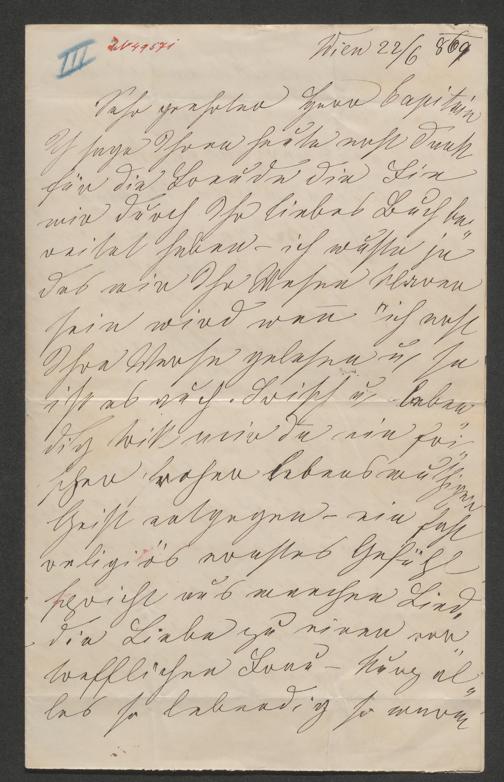 III
Wien 22/6 869
Sehr geehrter Herr Capitain
Ich sage Ihnen heute erst Dank
für die Freude die Sie
mir durch Ihr liebes Buch be„
reitet haben – ich wußte ja
das mir Ihr Wesen klarer
sein wird wen̅ ich erst
Ihre Verse gelesen u, so
ist es auch. Frisch u, leben„
dig tritt mir da ein fri„
scher froher lebensmuthiger
Geist entgegen – ein fast
religiös ernstes Gefühl
spricht aus manchen Lied,
die Liebe zu einer vor„
trefflichen Frau – Kurz al„
les so lebendig so warm